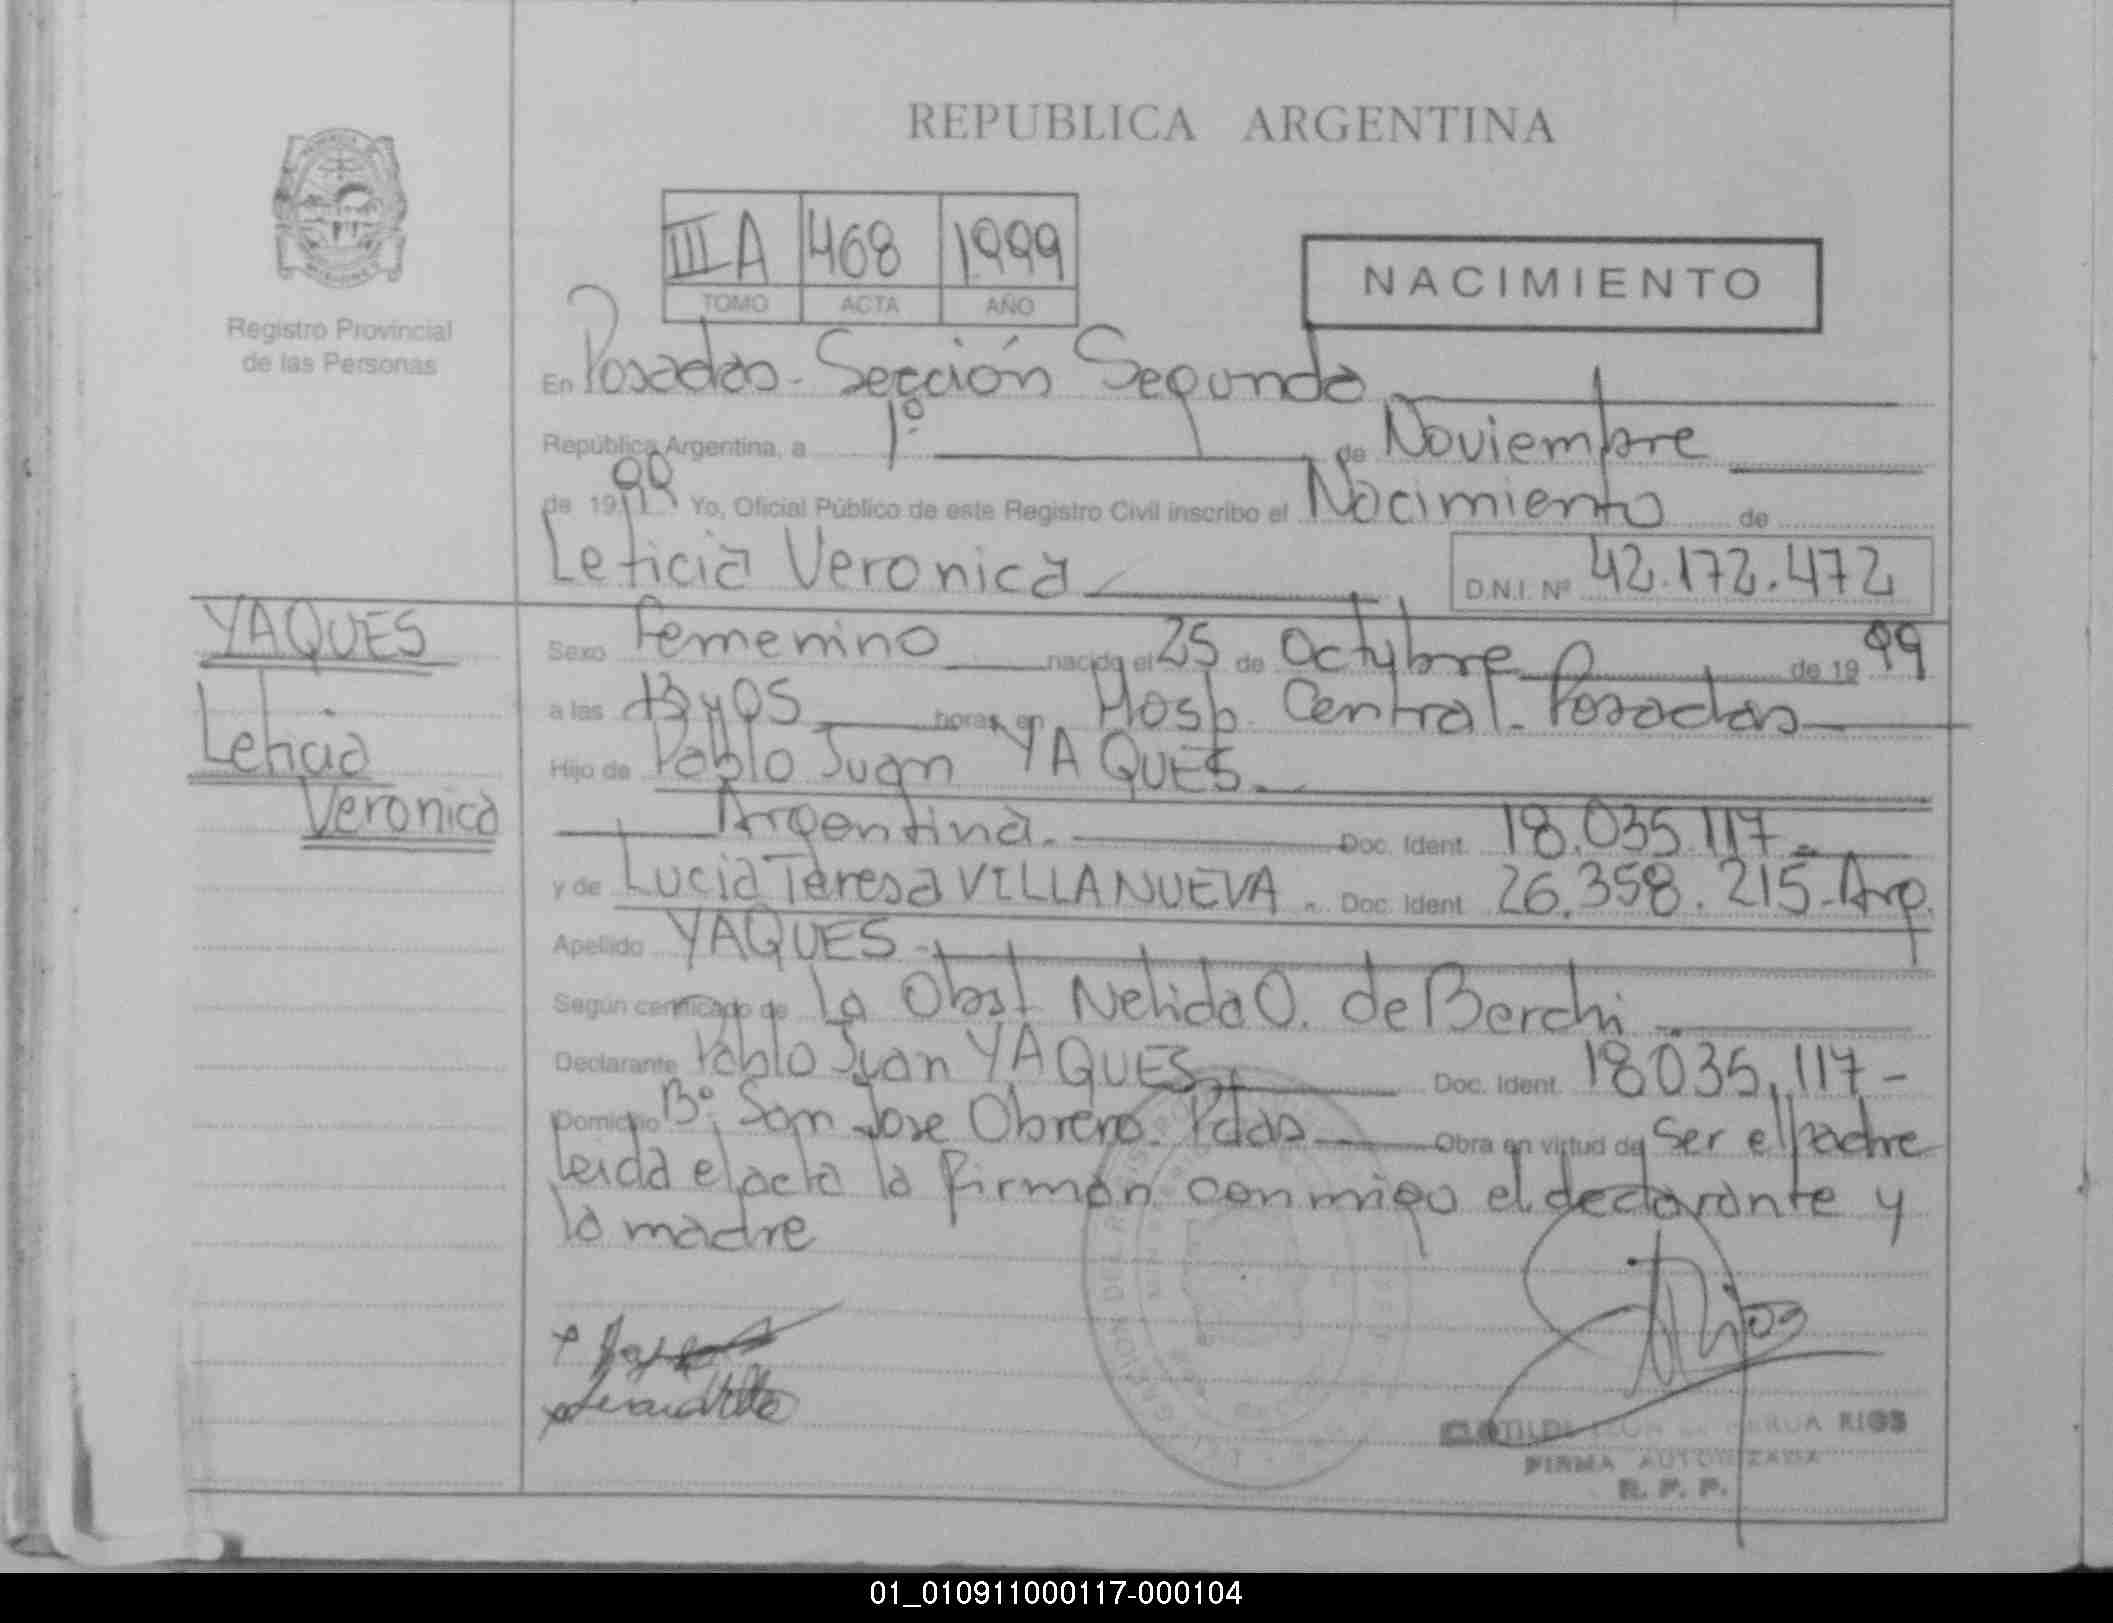 REPUBLICA ARGENTINA
III A 468 1999
TOMO ACTA AÑO
NACIMIENTO
Registro Provincial
de las Personas
En Posadas - Sección Segunda
República Argentina, a 1º de Noviembre
de 1999 Yo, Oficial Público de este Registro Civil inscribo el Nacimiento de
Leticia Veronica D.N.I. Nº 42.172.472
YAQUES
Leticia
Veronica
Sexo Femenino nacido el 25 de Octubre de 1999
a las 13 y 05 horas, en Hosp. Central - Posadas
Hijo de Pablo Juan YAQUES
Argentina. Doc. Ident. 18.035.117-
y de Lucia Teresa VILLANUEVA. Doc. Ident 26.358.215-Arg.
Apellido YAQUES-
Según certificado de la Obst Nelida O. de Berchi
Declarante Pablo Juan YAQUES Doc. Ident. 18035.117-
Domicilio Bº San Jose Obrero. Pdas Obra en virtud de Ser el padre
leida el acta la firman conmigo el declarante y
la madre
RIOS
FIRMA AUTORIZADA
R. P. P.
01_010911000117-000104